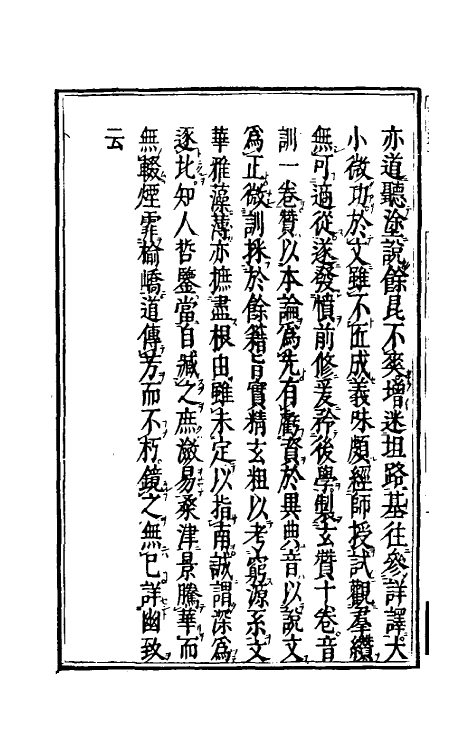 亦道聽塗説餘昆不爽增迷坦路基往參詳譯大
小微功於文雖不匠成義味頗經師授試觀羣纘
無可適從遂發憤前修爰矜後學製玄贊十卷音
訓一卷贊以本論爲先有虧資於異典音以説文
爲正微訓採於餘籍旨實精玄粗以考窮源系文
華雅藻薄亦摭盡根由雖未定以指南誠謂深爲
逐比知人哲鑒當自臧之庶潋易桑津景騰華而
無輟煙霏楡嶠道傳芳而不朽鏡之無已詳幽致
云